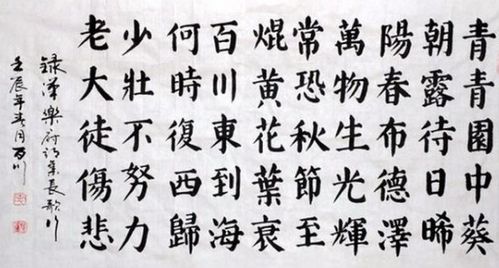 青青園中葵
朝露待日晞
陽春布德澤
萬物生光輝
常恐秋節至
焜黄花葉衰
百川東到海
何時復西歸
少壯不努力
老大徒傷悲
録漢樂府詩集長歌行
壬辰年春月百川